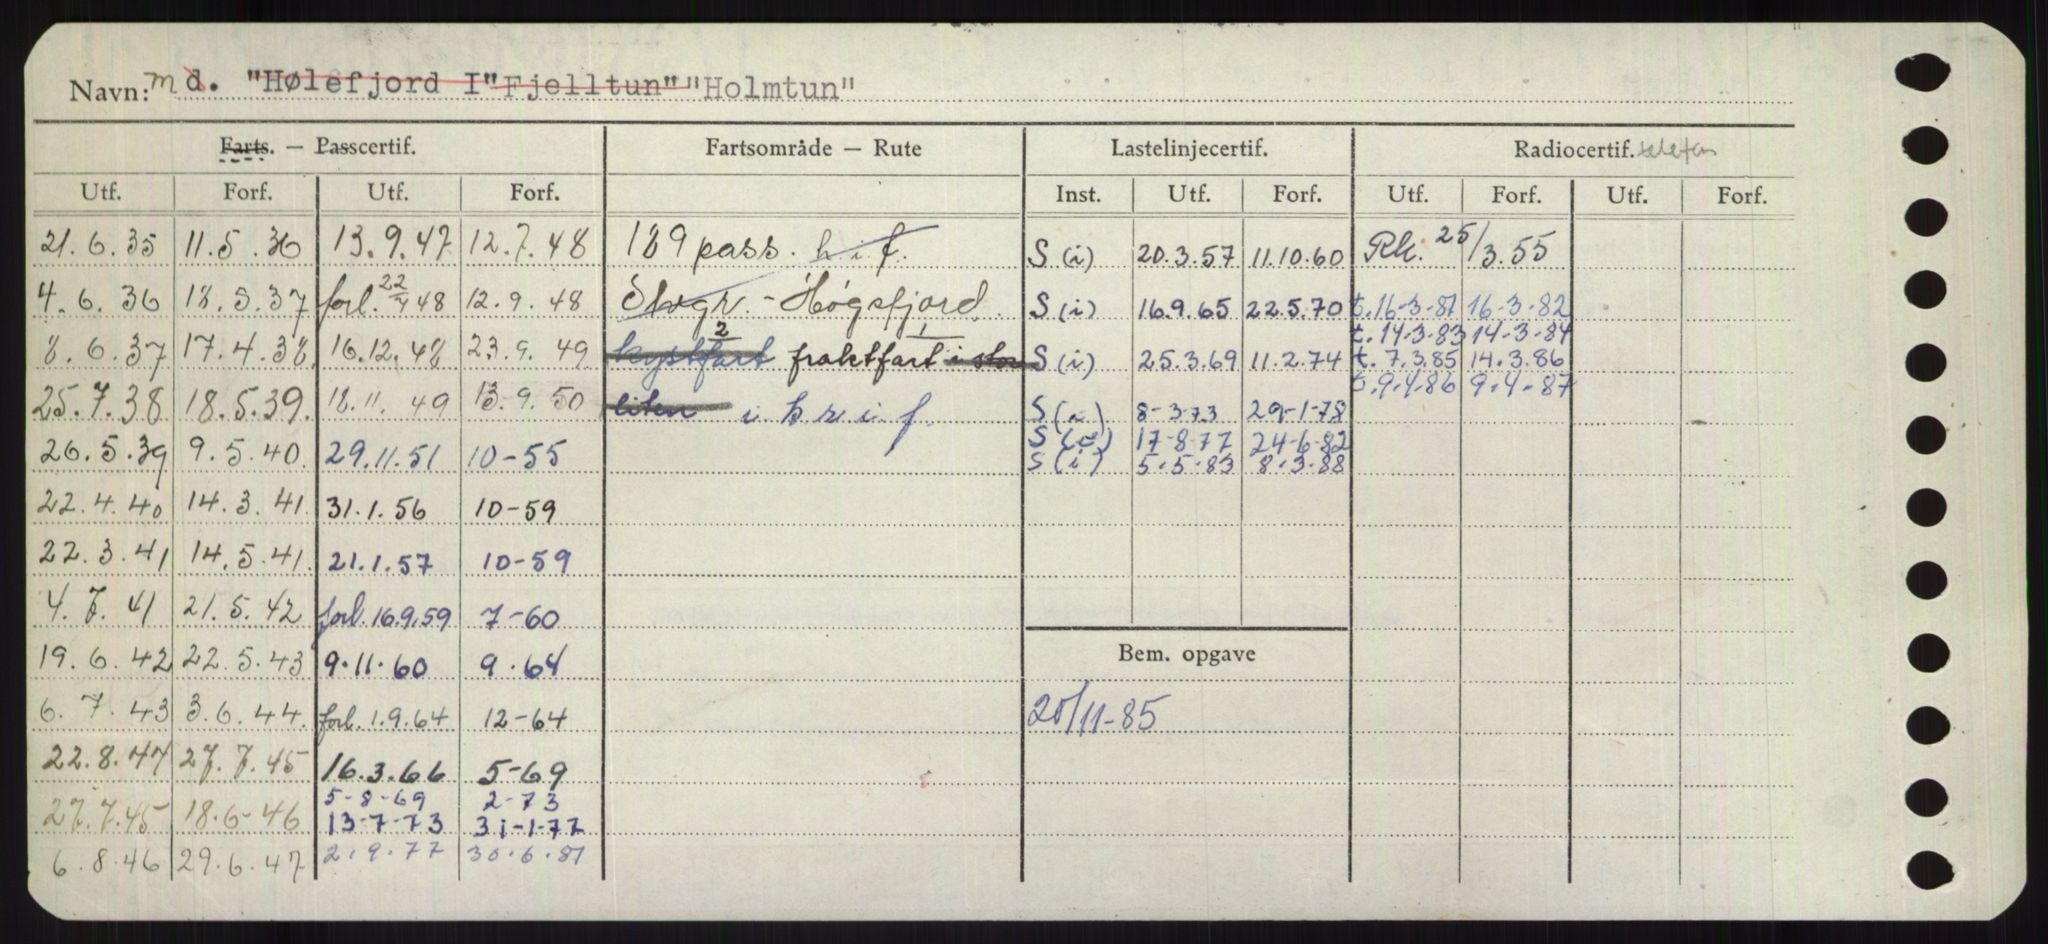 Navn: m d. "Hølefjord I" "Fjelltun" "Holmtun"
Farts. — Passcertif. Fartsområde — Rute Lastelinjecertif. Radiocertif. telefon
Utf. Forf. Utf. Forf. Inst. Utf. Forf. Utf. Forf. Utf. Forf.
21.6.35 11.5.36 13.9.47 12.7.48 189 pass. h i f. S (i) 20.3.57 11.10.60 Rk. 25/3.55
4.6.36 18.5.37 forl. 22/4 48 12.9.48 Høgsfjord. S (i) 16.9.65 22.5.70 t.16-3-81 16-3-82
t.14-3-83 14-3-84
8.6.37 17.4.38 16.12.48 23.9.49 kystfart 2 fraktfart I S (i) 25.3.69 11.2.74 t. 7.3.85 14.3.86
t.9.4.86 9.4-87
25.7.38 18.5.39. 18.11.49 13.9.50 liten i k r. i f. S (i) 8-3-73 29-1-78
S (i) 17-8-77 24-6-82
26.5.39 9.5.40. 29.11.51 10-55 S (i) 5.5.83 8.3.88
22.4.40 14.3.41 31.1.56 10-59
22.3.41 14.5.41. 21.1.57 10-59
4.7.41 21.5.42 forl. 16.9.59 7-60
19.6.42 22.5.43 9.11.60 9.64 Bem. opgave
6.7.43 3.6.44. forl. 1.9.64 12-64 20/11-85
22.8.44 27.7.45 16.3.66 5-69
5-8-69 2-73
27.7.45 18.6-46 13-7-73 31-1-77
6.8.46 29.6.47 2.9.77 30.6.81